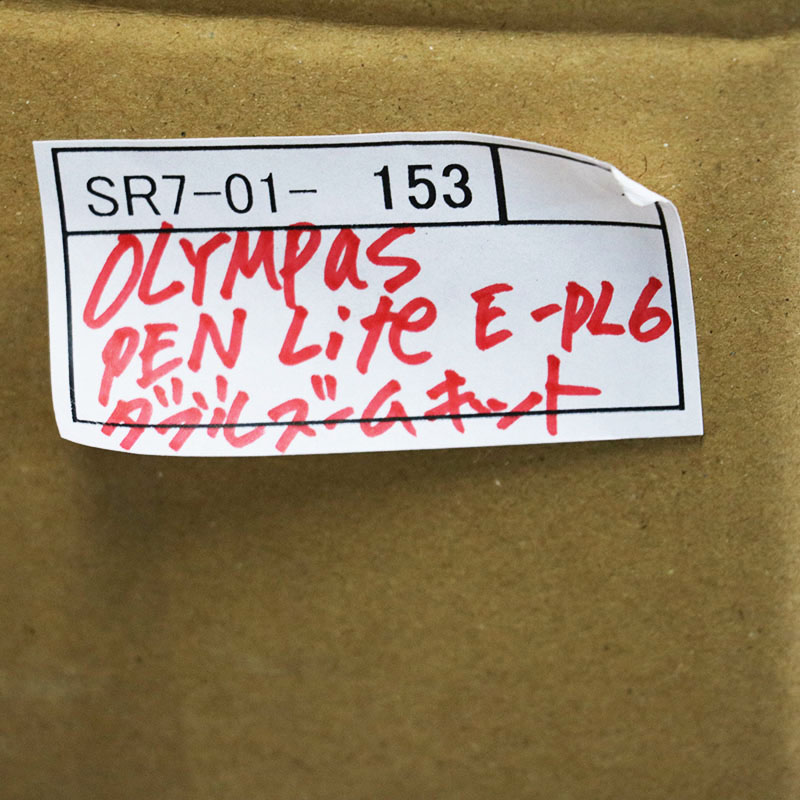 SR7-01- 153
OLYMPaS
PEN Lite E-PL6
ダブルズームキット